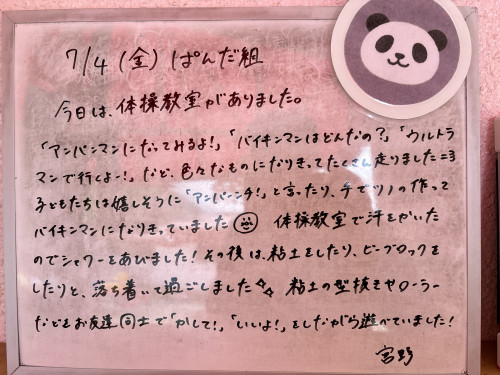 7/4 (金) ぱんだ組
今日は、体操教室がありました。
「アンパンマンになってみるよ!」、「バイキンマンはどんなの?」、「ウルトラ
マンで行くよー!」など、色々なものになりきってたくさん走りました=3
子どもたちは嬉しそうに「アンパーンチ!」と言ったり、手でツノの作って
バイキンマンになりきっていました 体操教室で汗をかいた
のでシャワーをあびました!その後は、粘土をしたり、ビーブロックを
したりと、落ち着いて過ごしました 粘土の型抜きやローラー
などをお友達同士で「かして!」、「いいよ!」をしながら遊べていました!
宮野